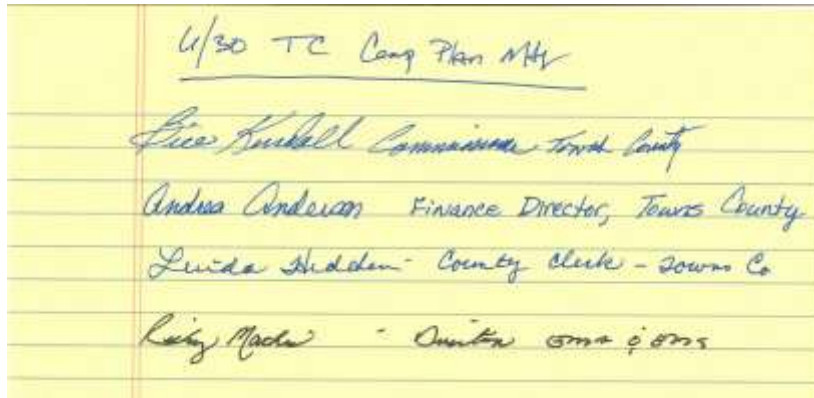 4/30 TC Comp Plan Mtg
Bill Kendall Commissioner Towns County
Andrea Anderson Finance Director, Towns County
Linda Hedden - County Clerk - Towns Co
- Director EMA & EMS